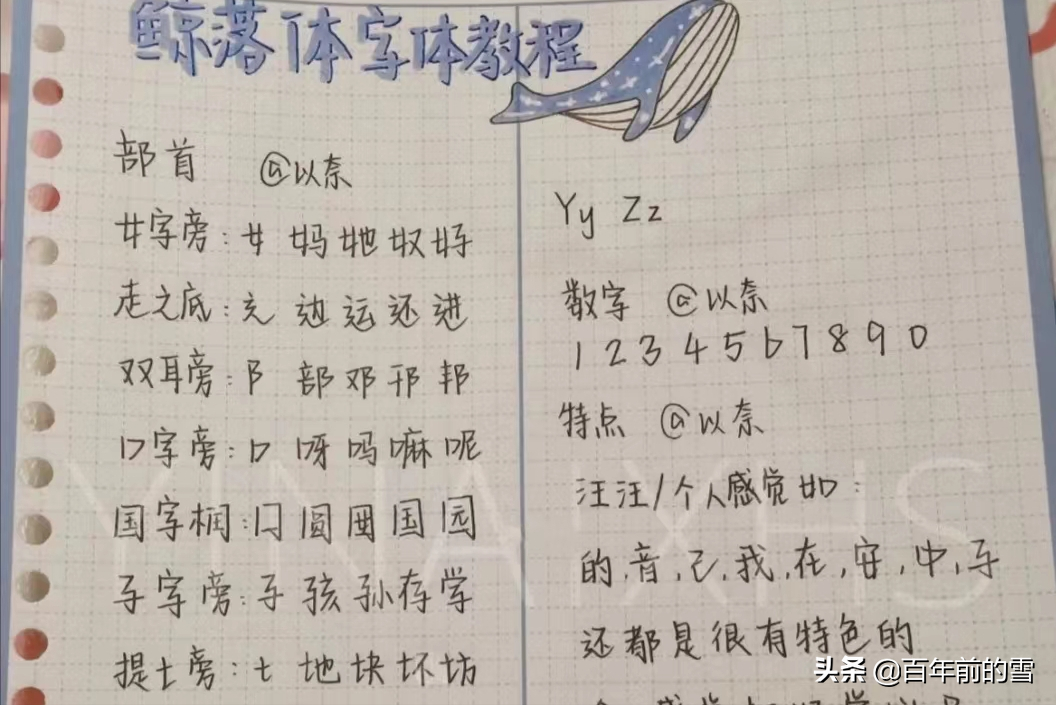 鲸落体字体教程
部首 @以奈
女字旁:女 妈 她 奴 好
走之底:辶 边 运 还 进
双耳旁:阝 部 邓 邗 邦
口字旁:口 呀 吗 嘛 呢
国字框:囗 圆 囲 国 园
子字旁:子 孩 孙 存 学
提土旁:土 地 块 坏 坊
Yy Zz
数字 @以奈
1 2 3 4 5 6 7 8 9 0
特点 @以奈
汪汪/个人感觉如:
的,音,己,我,在,安,中,子
还都是很有特色的
YINAIXHS
头条 @百年前的雪